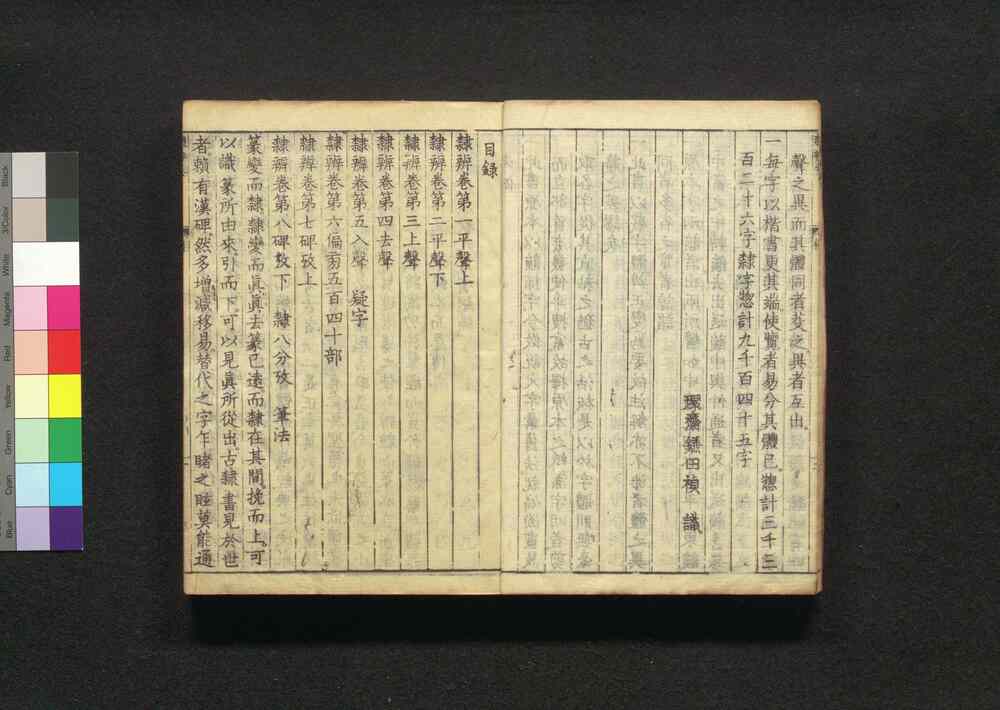 聲之異而其體同者芟之異者互出
一每字以楷書更其端使覽者易分其體已惣計三千三
百二十六字隷字惣計九千百四十五字
環齋鎌田禎 識
目録
隷辨卷第一平聲上
隷辨卷第二平聲下
隷辨卷第三上聲
隷辨卷第四去聲
隷辨卷第五入聲 疑字
隷辨卷第六偏旁五百四十部
隷辨卷第七碑攷上
隷辨卷第八碑攷下 隷八分攷 筆法
篆變而隷隷變而眞眞去篆已遠而隷在其間挽而上可
以識篆所由來引而下可以見眞所從出古隷書見於世
者頼有漢碑然多增減移易替代之字乍睹之眭莫能通
Black
3/Color
White
Magenta
Red
Yellow
Green
Cyan
Blue